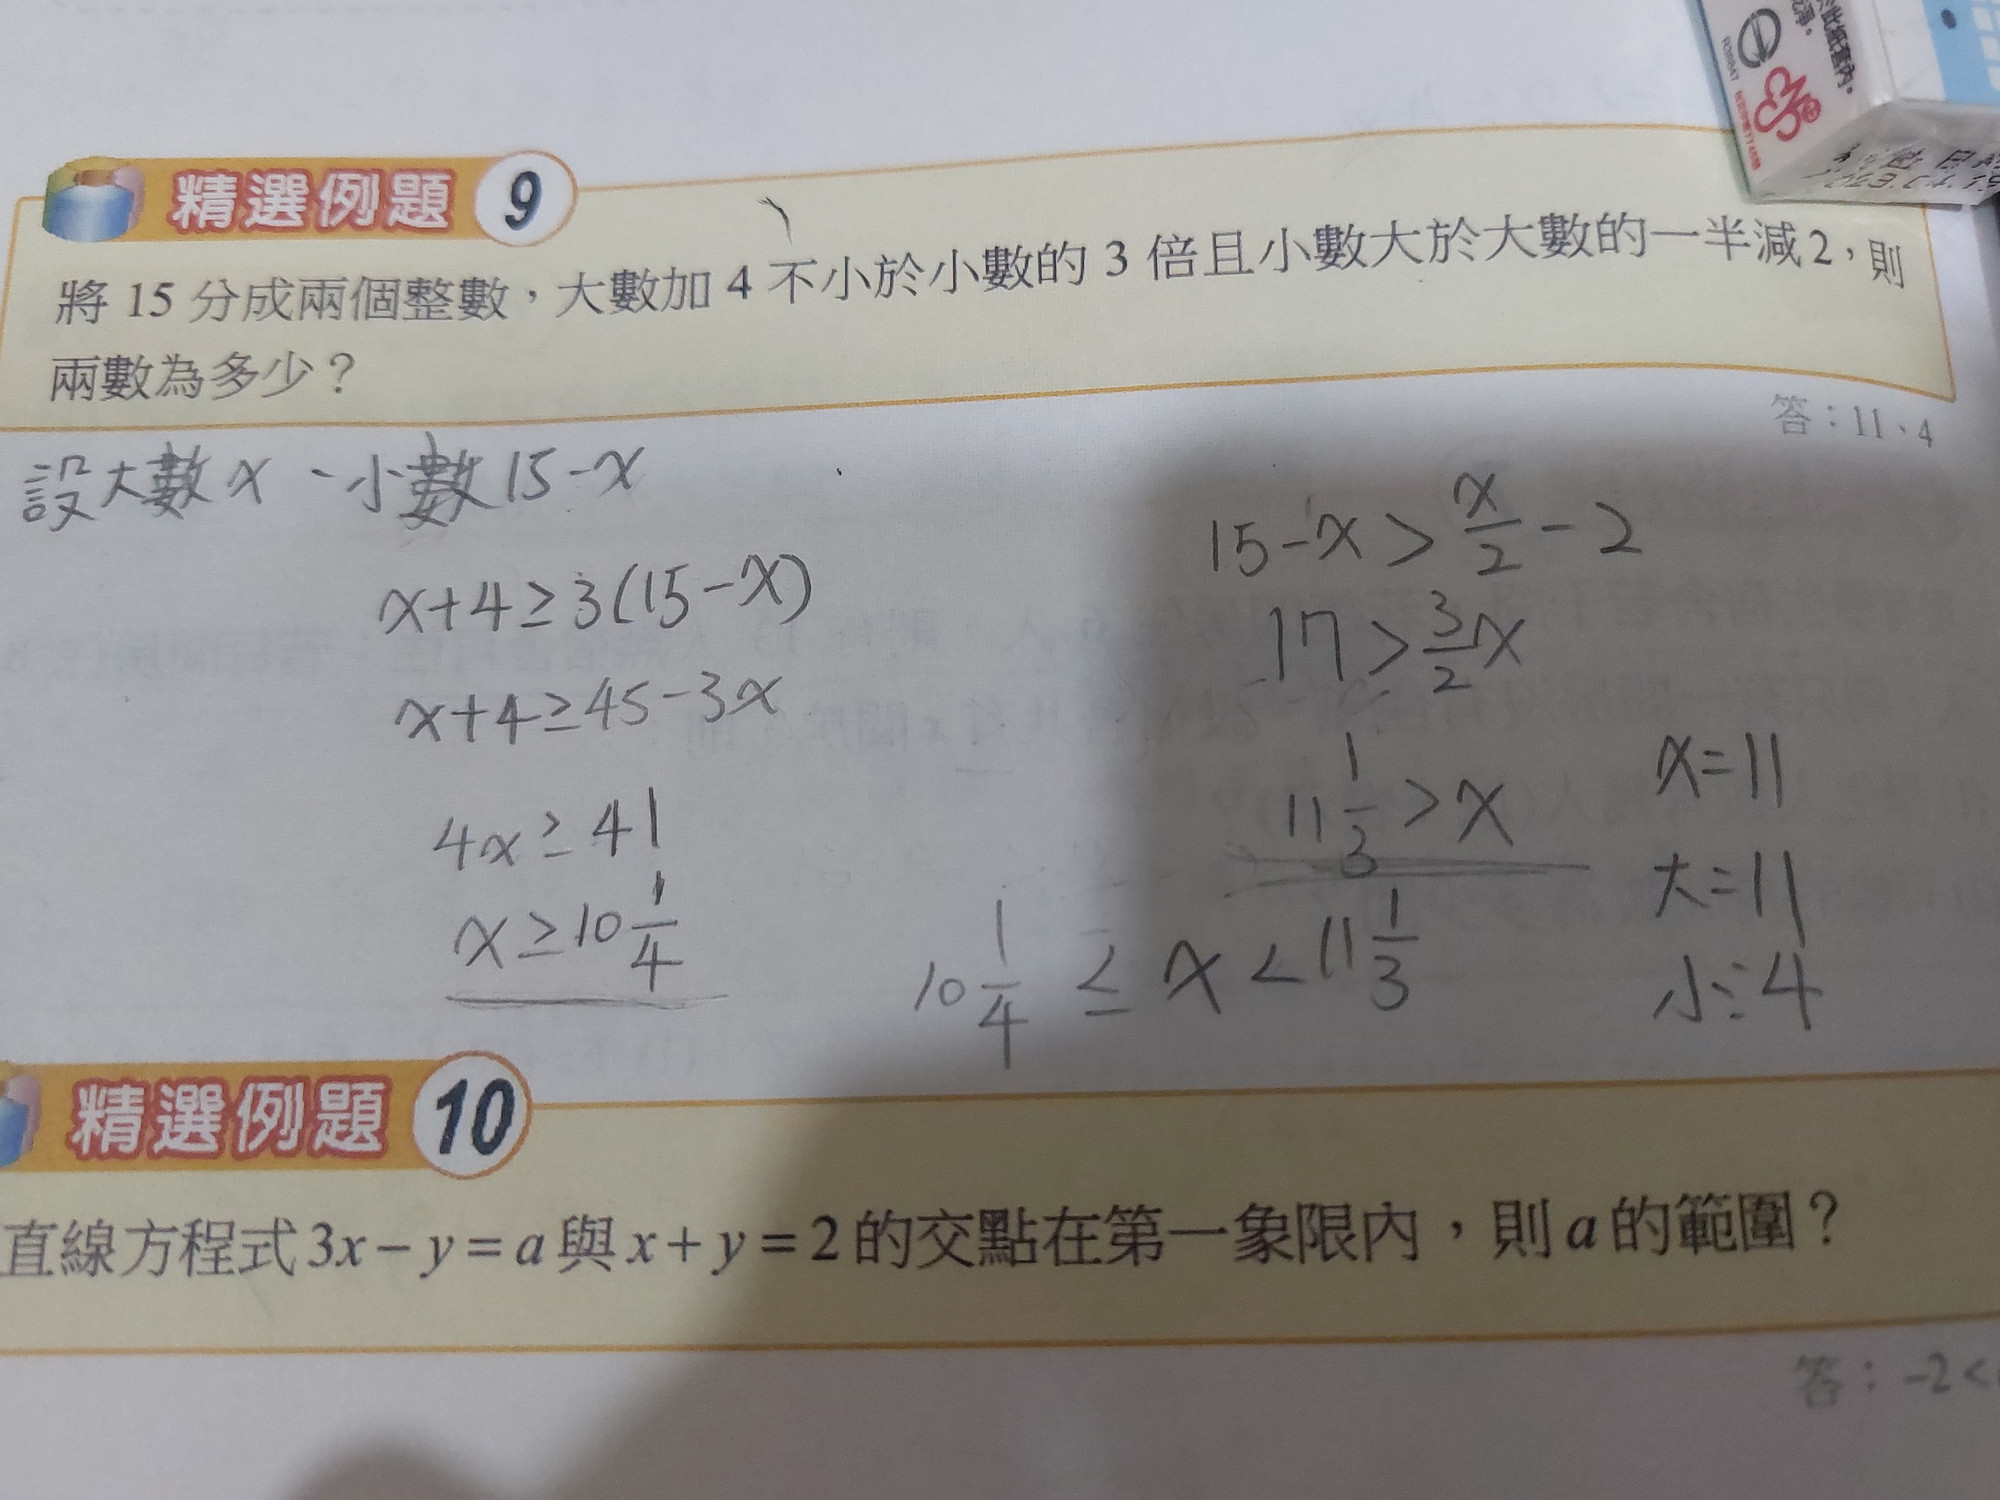 於此紙套內。
R39847
精選例題 9
將 15 分成兩個整數，大數加 4 不小於小數的 3 倍且小數大於大數的一半減 2，則
兩數為多少？
答：11、4
設大數 x、小數 15-x
x+4≥3(15-x)
x+4≥45-3x
4x≥41
x≥10 1/4
15-x > x/2 - 2
17 > 3/2 x
11 1/3 > x
10 1/4 ≤ x < 11 1/3
x=11
大=11
小=4
精選例題 10
直線方程式 3x－y＝a 與 x＋y＝2 的交點在第一象限內，則 a 的範圍？
答：-2<